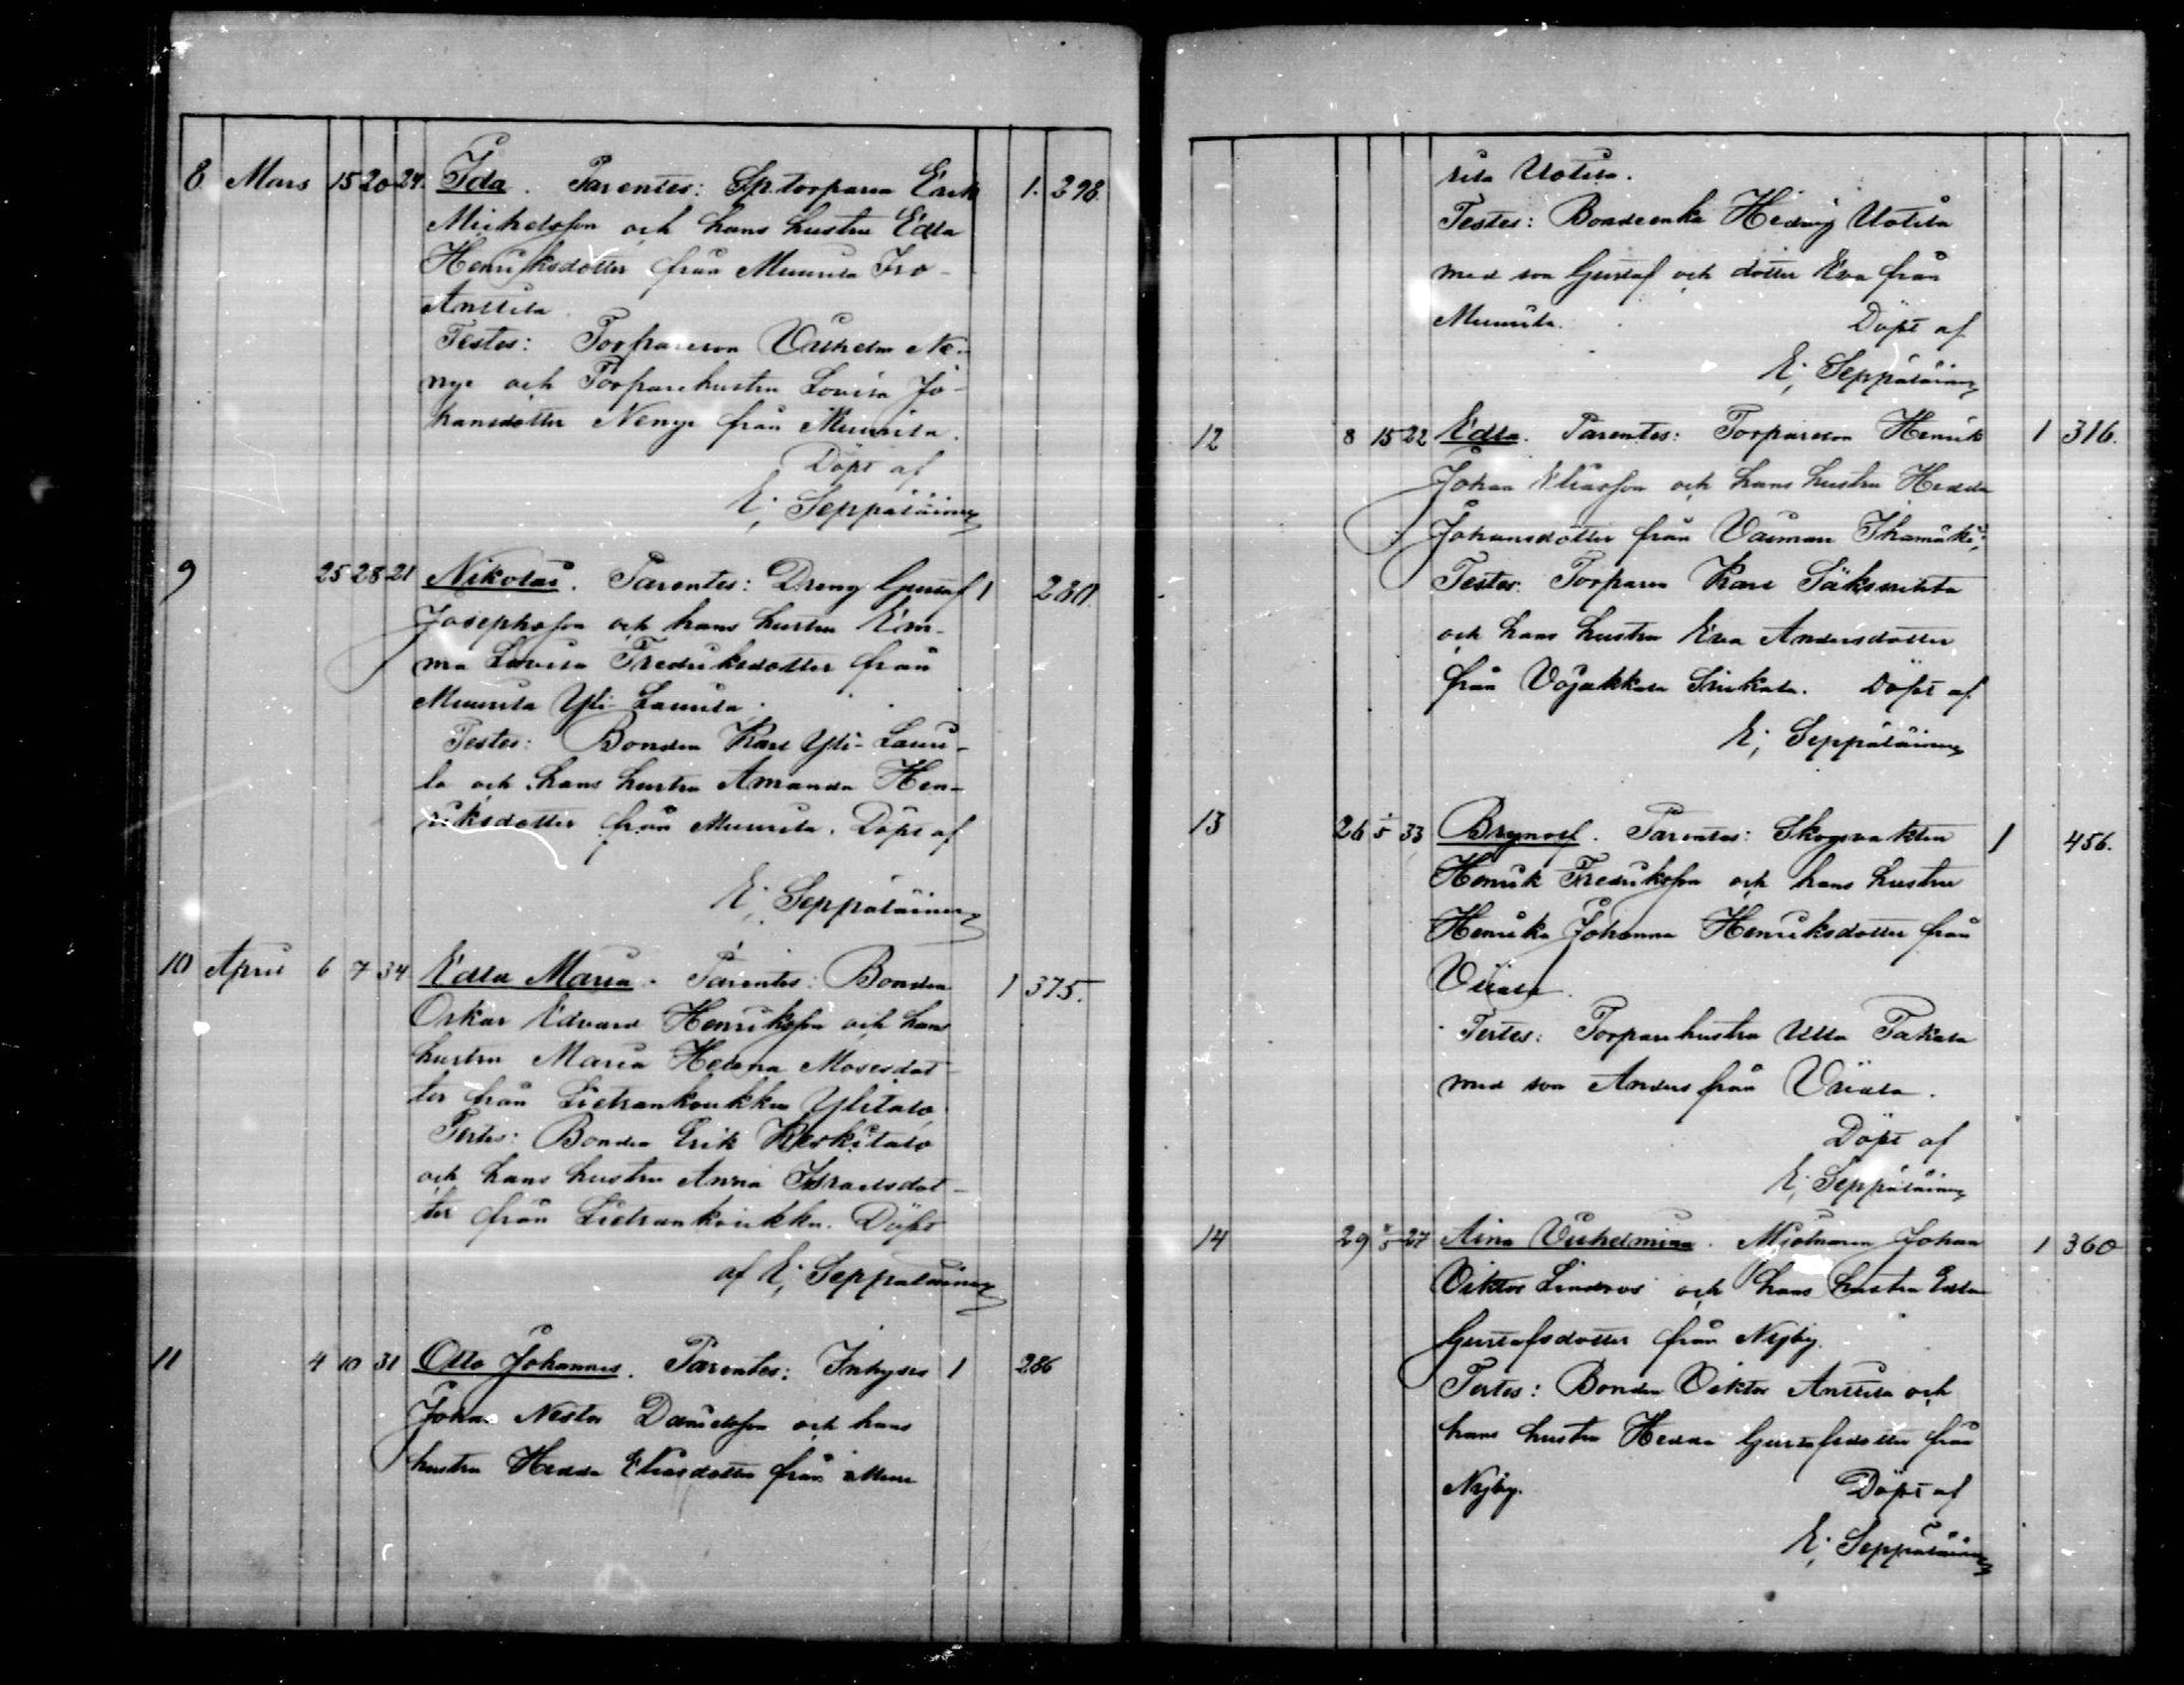 8 Mars 15 20 24. Ida. Parentes: Sptorparen Erik 1. 398.
Michelsson och hans hustru Edla
Henriksdotter från Muurila Iso-
Anttila.
Testes: Torpareson Vilhelm Ne-
nye och Torparehustru Lovisa Jo-
hansdotter Nenye från Muurila.
Döpt af
E; Seppäläinen
9 25 28 21 Nikolai. Parentes: Dreng Gustaf 1 280.
Josephsson och hans hustru Em-
ma Lovisa Fredriksdotter från
Muurila Yli-Laurila.
Testes: Bonden Karl Yli-Lauri-
la och hans hustru Amanda Hen-
riksdotter från Muurila. Döpt af
E; Seppäläinen
10 April 6 7 34 Edla Maria. Parentes: Bonden 1 375.
Oskar Edvard Henriksson och hans
hustru Maria Helena Mosesdot-
ter från Lietsankoukku Ylitalo.
Testes: Bonden Erik Keskitalo
och hans hustru Anna Israelsdot-
ter från Lietsankoukku. Döpt
af E; Seppäläinen
11 4 10 31 Otto Johannes. Parentes: Inhyses 1 286
Johan Nestor Danielsson och hans
hustru Hedda Eliasdotter från Muu
rila Uotila.
Testes: Bondeenka Hedvig Uotila
med son Gustaf och dotter Eva från
Muurila. Döpt af
E; Seppäläinen
12 8 15 22 Edla. Parentes: Torpareson Henrik 1 316.
Johan Eliasson och hans hustru Hedda
Johansdotter från Vaiman Ihamäki.
Testes: Torparen Karl Säksmikko
och hans hustru Eva Andersdotter
från Vojakkala Sinkala. Döpt af
E; Seppäläinen
13 26 1/5 33 Brynolf. Parentes: Skogvakten 1 456.
Henrik Fredriksson och hans hustru
Henrika Johanna Henriksdotter från
Viiala.
Testes: Torparehustru Ulla Takala
med son Anders från Viiala.
Döpt af
E; Seppäläinen
14 29 /5 27 Aina Vilhelmina. Mjölnaren Johan 1 360
Viktor Lindroos och hans hustru Edla
Gustafsdotter från Nyby.
Testes: Bonden Viktor Anttila och
hans hustru Hedda Gustafsdotter från
Nyby. Döpt af
E; Seppäläinen